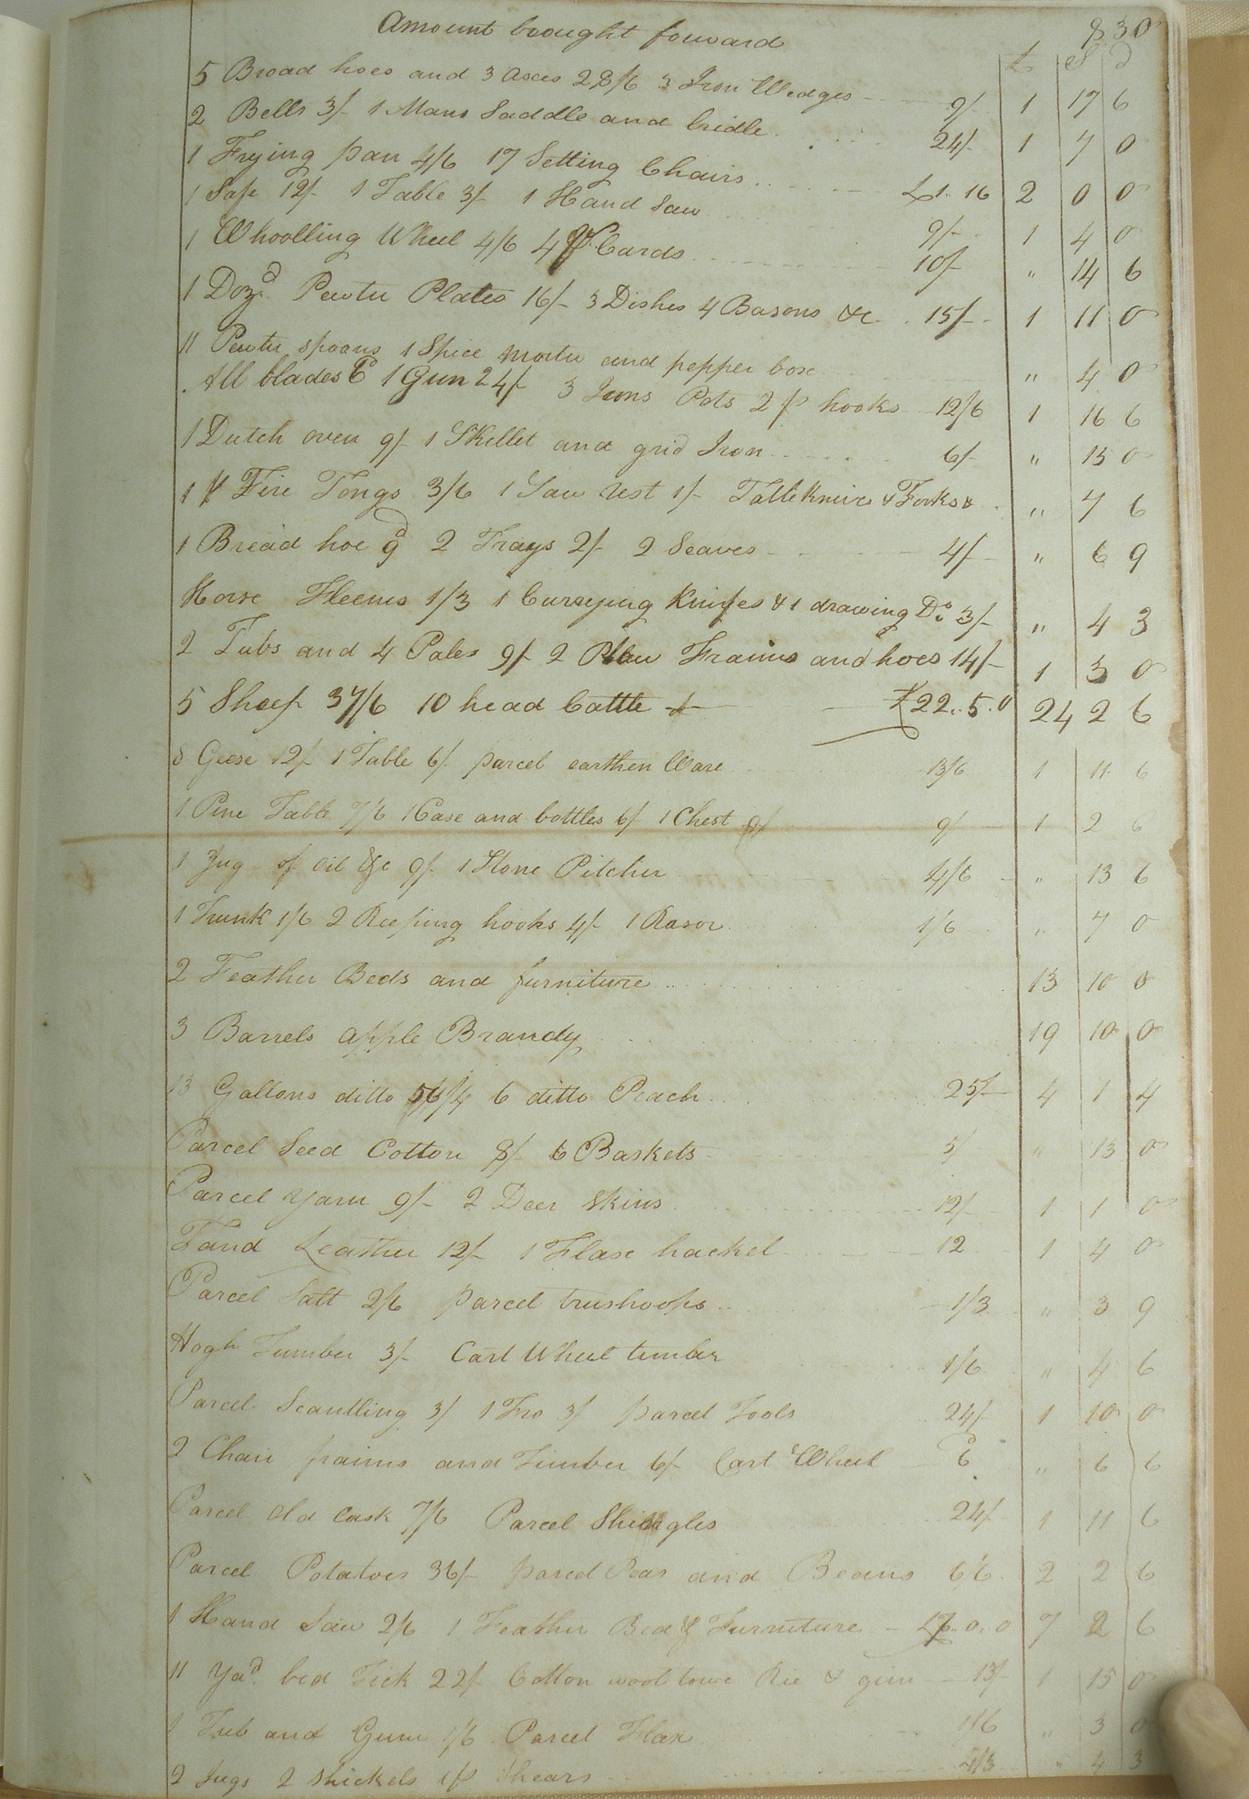 Amount brought forward 830
£ S d
5 Broad hoes and 3 axes 28/6 3 Iron Wedges 9/ 1 17 6
2 Bells 3/ 1 Mans Saddle and bridle 24/ 1 7 0
1 Frying pan 4/6 17 Setting Chairs £1.16 2 0 0
1 Safe 12/ 1 Table 3/ 1 Hand Saw 9/ 1 4 0
1 Whoolling Wheel 4/6 4 pr Cards 10/ " 14 6
1 Dozd. Pewter Plates 16/ 3 Dishes 4 Basons &c 15/ 1 11 0
11 Pewter spoons 1 Spice morter and pepper box " 4 0
All blades 6d 1 Gun 24/ 3 Irons Pots 2 pr hooks 12/6 1 16 6
1 Dutch oven 9/ 1 Skillet and grid Iron 6/ " 15 0
1 pr Fire Tongs 3/6 1 Saw rest 1/ Table Knive & Forks & " 7 6
1 Broad hoe 9d 2 Trays 2/ 2 Seaves 4/ " 6 9
Horse Fleems 1/3 1 Currying Knifes & 1 drawing Do. 3/ " 4 3
2 Tubs and 4 Pales 9/ 2 Plow Fraims and hoes 14/ 1 3 0
5 Sheep 37/6 10 head Cattle £22.5.0 24 2 6
8 Geese 12/ 1 Table 6/ parcel earthen Ware 13/6 1 11 6
1 Pine Table 7/6 1 Case and bottles 6/ 1 Chest 9/ 1 2 6
1 Jug of oil &c 9/ 1 Stone Pitcher 4/6 " 13 6
1 Trunk 1/6 2 Reeping hooks 4/ 1 Rasor 1/6 " 7 0
2 Feather Beds and furniture 13 10 0
3 Barrels apple Brandy 19 10 0
13 Gallons ditto 56/4 6 ditto Peach 25/ 4 1 4
Parcel Seed Cotton 8/ 6 Baskets 5/ " 13 0
Parcel Yarn 9/ 2 Deer Skins 12/ 1 1 0
Tand Leather 12/ 1 Flax hackel 12 1 4 0
Parcel Salt 2/6 parcel trushoops 1/3 " 3 9
Hogh Tumber 3/ Cart Wheel timber 1/6 " 4 6
Parcel Scantling 3/ 1 Fro 3/ parcel Tools 24/ 1 10 0
2 Chair fraims and Timber 6/ Cart Wheel 6d " 6 6
Parcel old Cask 7/6 Parcel Shingles 24/ 1 11 6
Parcel Potatoes 36/ parcel Peas and Beans 6/6 2 2 6
1 Hand Saw 2/6 1 Feather Bed & Furniture £7.0.0 7 2 6
11 Yad. bed Tick 22/ Cotton wool towe Rie & gum 13/ 1 15 0
1 Tub and Gum 1/6 Parcel Flax 1/6 " 3 0
2 Jugs 2 Shickels 1 pr Shears 4/3 " 4 3